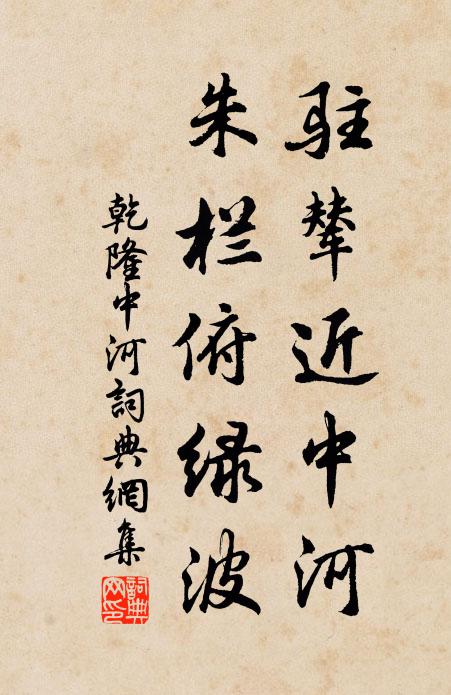 驻辇近中河
朱栏俯绿波
乾隆中河詞典網集
詞典网印